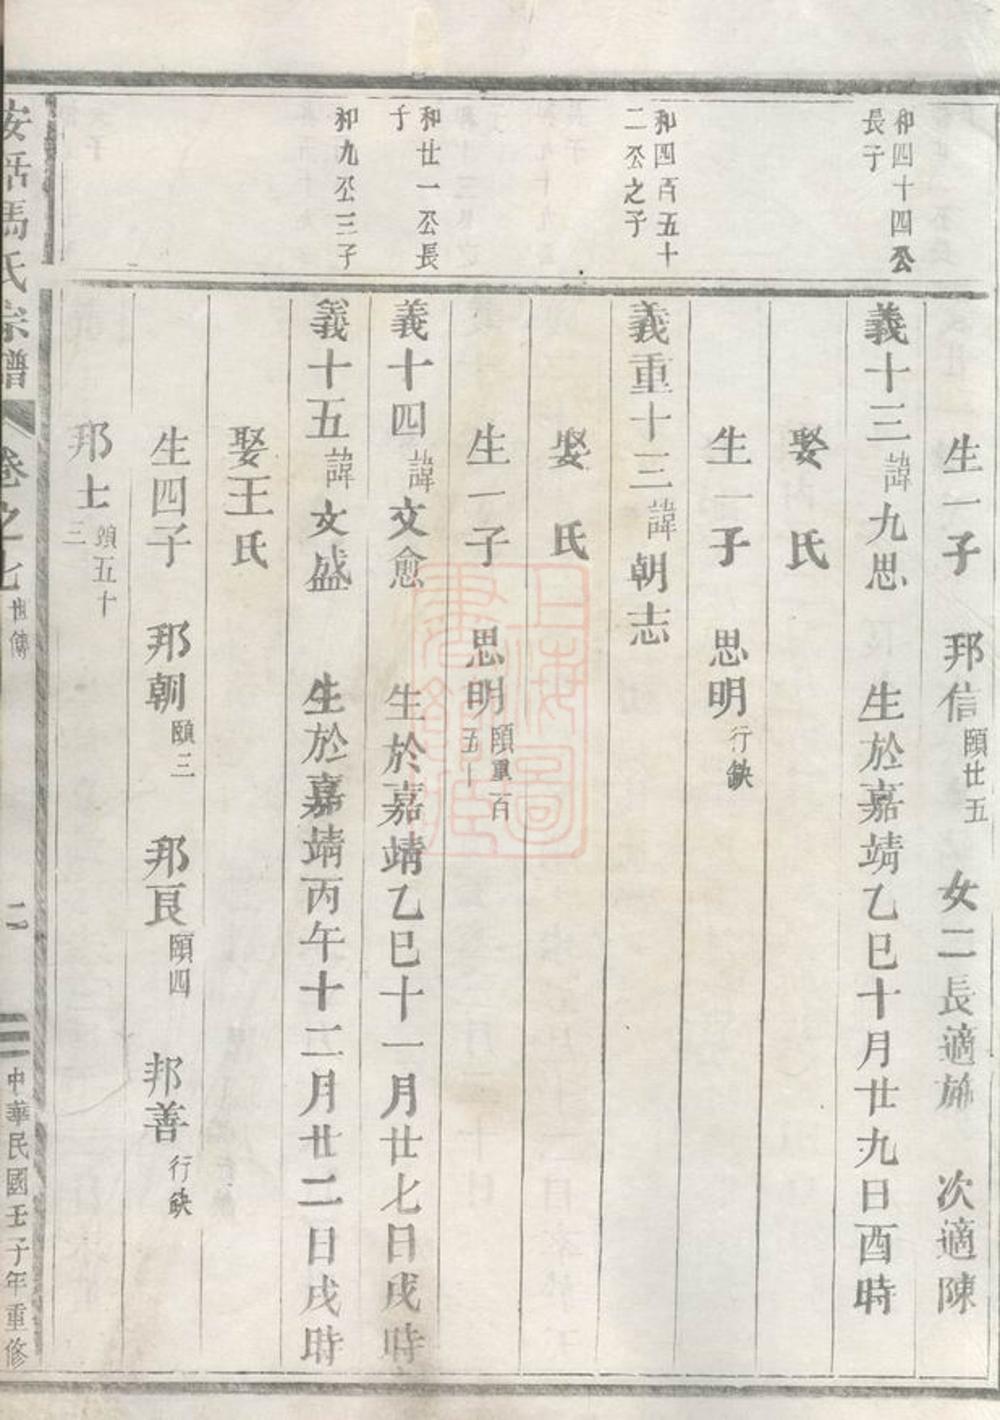 生一子　邦信頤廿五　女二長適施　次適陳
和四十四公長子
義十三諱九思　生於嘉靖乙巳十月廿九日酉時
娶　氏
生一子　思明行缺
和四百五十二公之子
義重十三諱朝志
娶　氏
生一子　思明頤重百五十
和廿一公長子
義十四諱文愈　生於嘉靖乙巳十一月廿七日戌時
和九公三子
義十五諱文盛　生於嘉靖丙午十二月廿二日戌時
娶王氏
生四子　邦朝頤三　邦良頤四　邦善行缺
邦士頤五十三
安活馬氏宗譜　卷之七　世傳　二　中華民國壬子年重修
上海圖書館藏